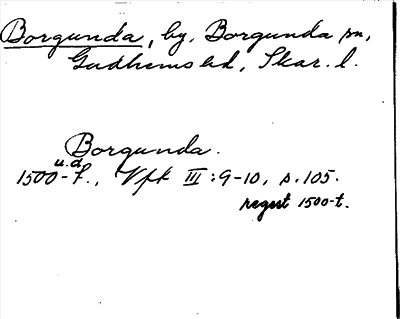 Borgunda, by, Borgunda sn,
Gudhems hd, Skar. l.
Borgunda.
u.d.
1500-t., Vfk III:9-10, s.105.
regist 1500-t.